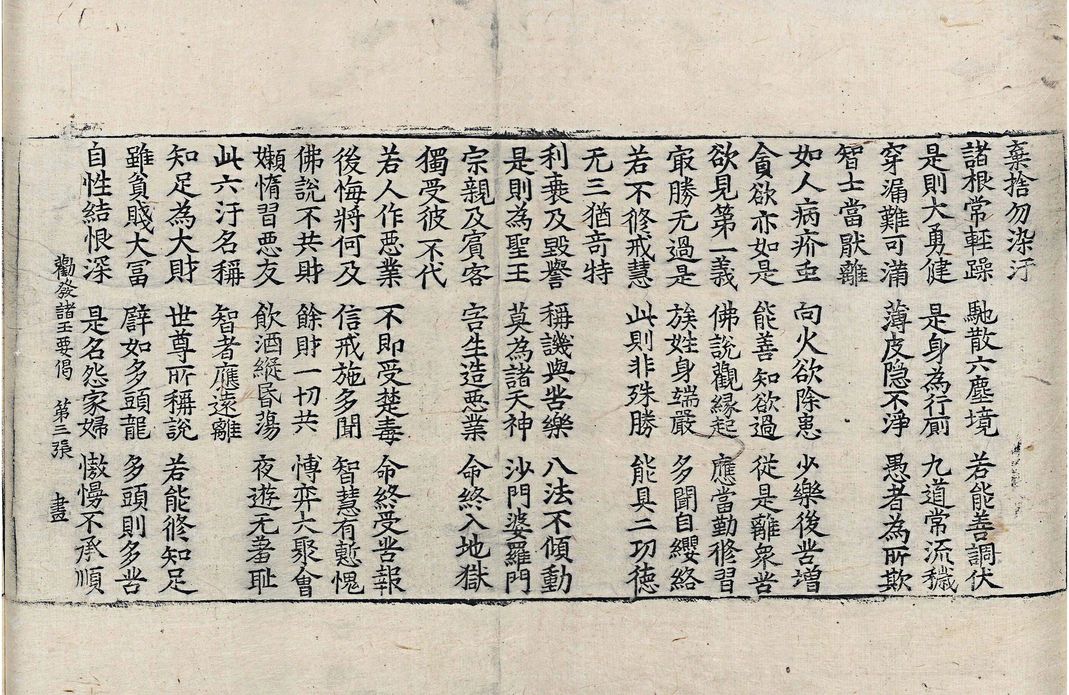 棄捨勿染汙
諸根常輕躁 馳散六塵境 若能善調伏
是則大勇健 是身為行厠 九道常流穢
穿漏難可滿 薄皮隐不淨 愚者為所欺
智士當猒離
如人病疥虫 向火欲除患 少樂後苦增
貪欲亦如是 能善知欲過 從是離衆苦
欲見第一義 佛說觀緣起 應當勤修習
冣勝无過是 族姓身端嚴 多聞自纓絡
若不修戒慧 此則非殊勝 能具二功德
无三猶奇特
利衰及毀譽 稱譏與苦樂 八法不傾動
是則為聖王 莫為諸天神 沙門婆羅門
宗親及賓客 害生造惡業 命終入地獄
獨受彼不代
若人作惡業 不即受楚毒 命終受苦報
後悔將何及 信戒施多聞 智慧有慙愧
佛說不共財 餘財一切共 博弈大聚會
嬾惰習惡友 飲酒縱昬蕩 夜遊无羞耻
此六汙名稱 智者應遠離
知足為大財 世尊所稱說 若能修知足
雖貧賤大富 譬如多頭龍 多頭則多苦
自性結恨深 是名怨家婦 慠慢不承順
勸發諸王要偈 第三張 畫